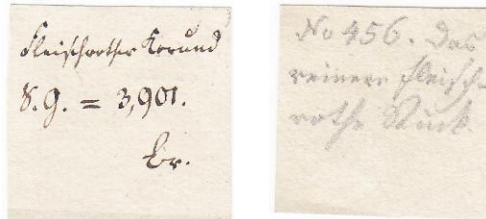 Fleischrother Korund
S. G. = 3,901.
Br.
No 456. Das
reinere fleisch-
rothe Stück